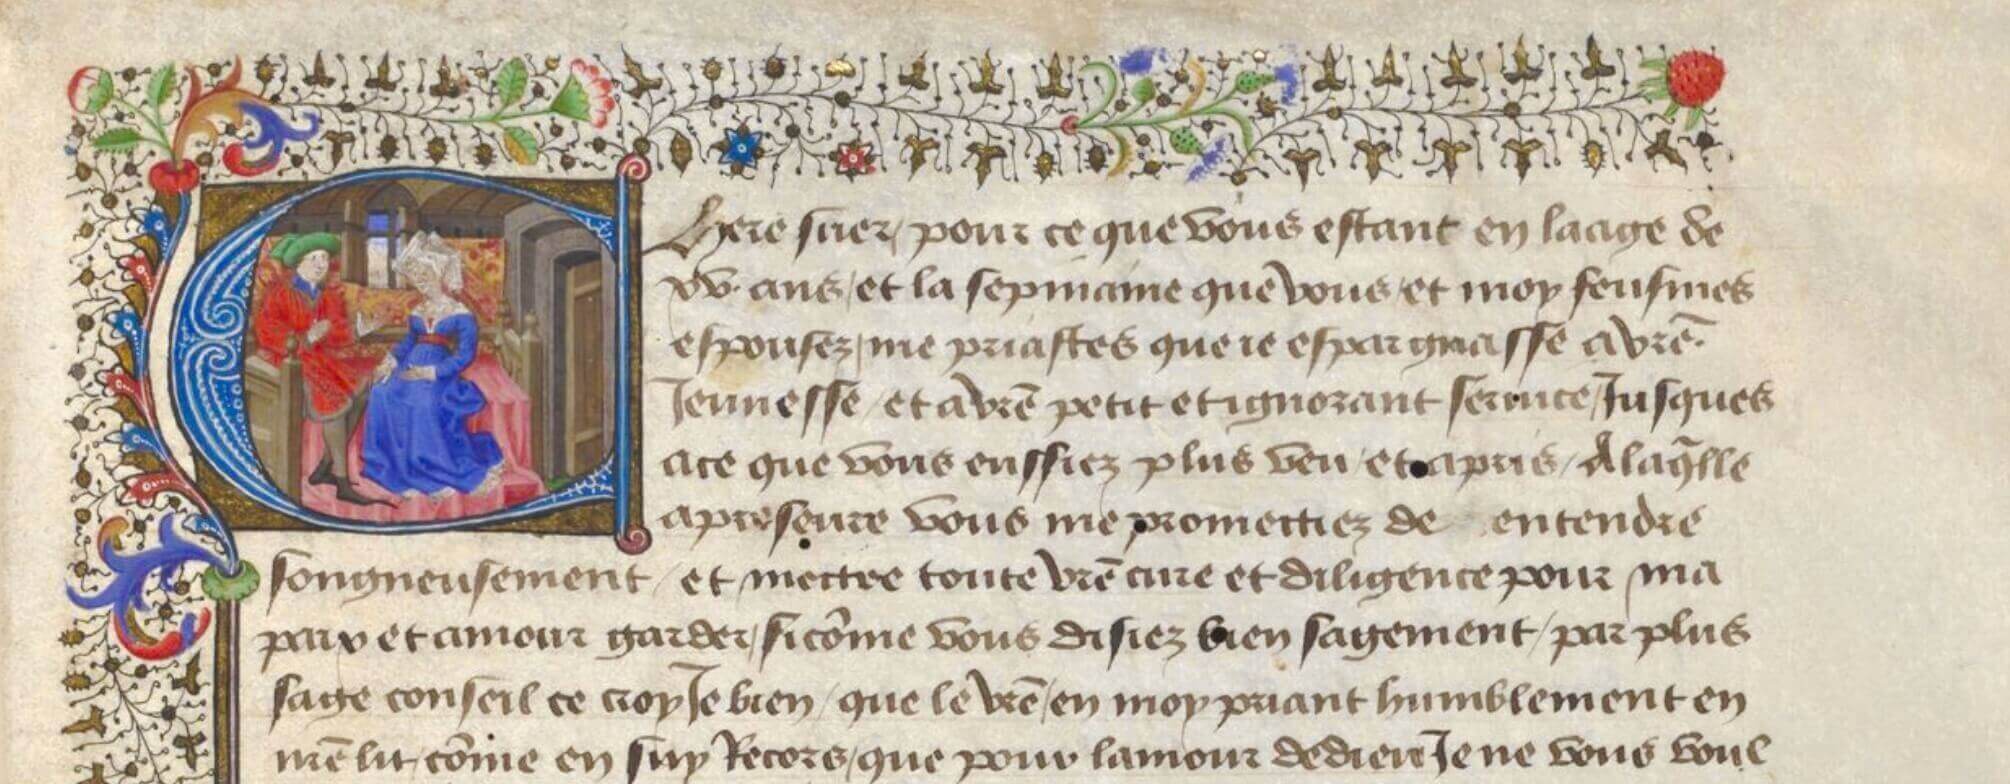 Chere suer, pour ce que vous estant en laage de
xv. ans, et la sepmaine que vous, et moy feusmes
espousez, me priastes que ie espargnasse a vr̄e.
Jeunesse, et a vr̄e petit et ignorant seruice, Jusques
ace que vous eussiez plus veu, et apris, A laq̄lle
apresure vous me promettiez de entendre
songneusement, et mettre toute vr̄e cure et diligence pour ma
paix et amour garder, si cōme vous disiez bien sagement, par plus
sage conseil ce croy Je bien, que le vr̄e, en moy priant humblement en
nr̄e lit, cōme en suy Recors, que pour lamour de dieu Je ne vous voul